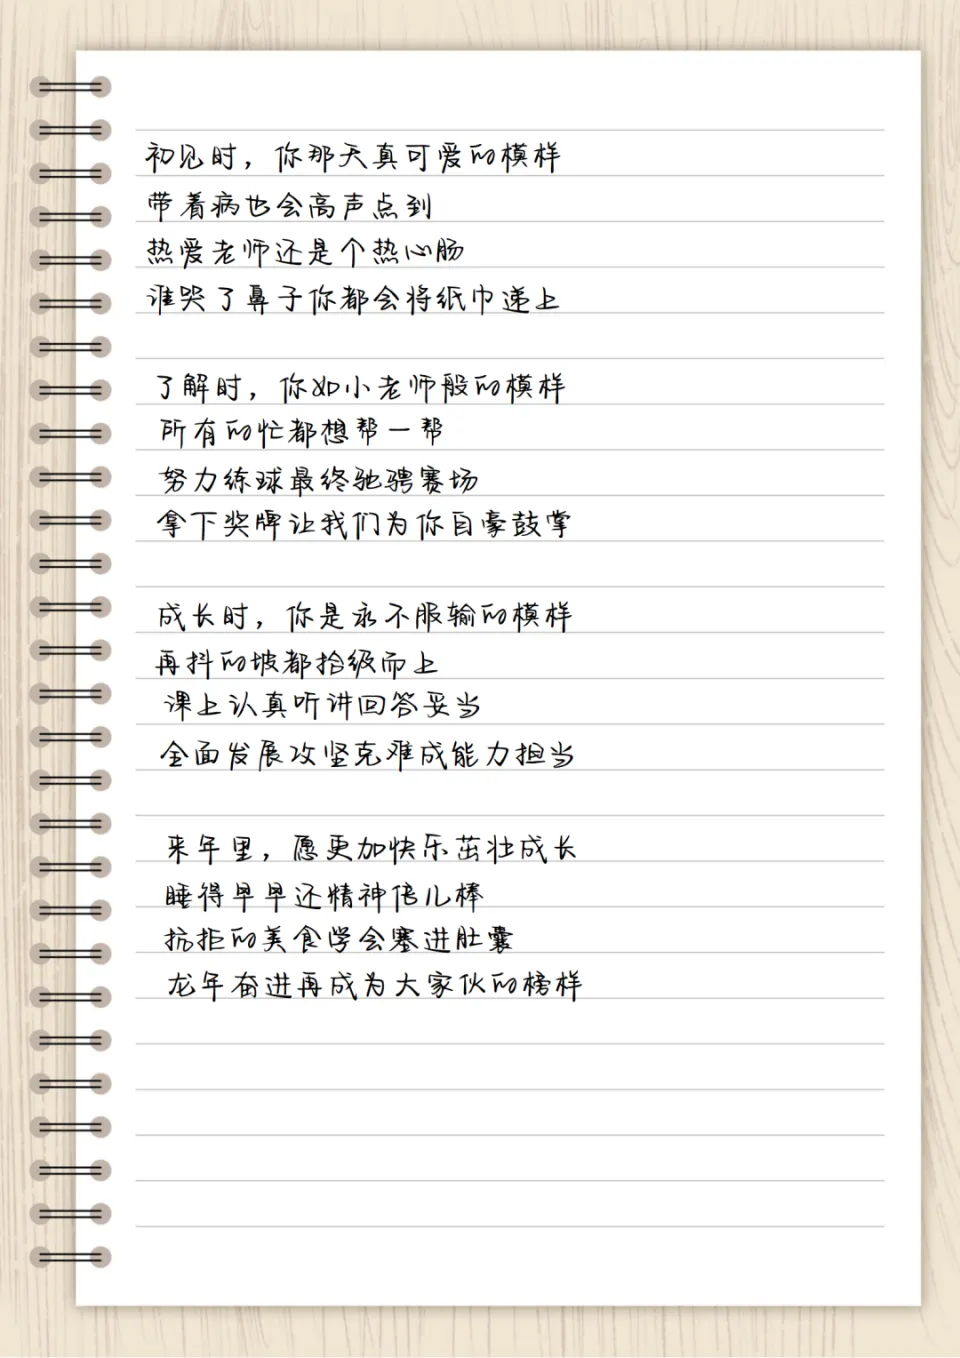 初见时，你那天真可爱的模样
带着病也会高声点到
热爱老师还是个热心肠
谁哭了鼻子你都会将纸巾递上
了解时，你如小老师般的模样
所有的忙都想帮一帮
努力练球最终驰骋赛场
拿下奖牌让我们为你自豪鼓掌
成长时，你是永不服输的模样
再抖的坡都拾级而上
课上认真听讲回答妥当
全面发展攻坚克难成能力担当
来年里，愿更加快乐茁壮成长
睡得早早还精神倍儿棒
抗拒的美食学会塞进肚囊
龙年奋进再成为大家伙的榜样